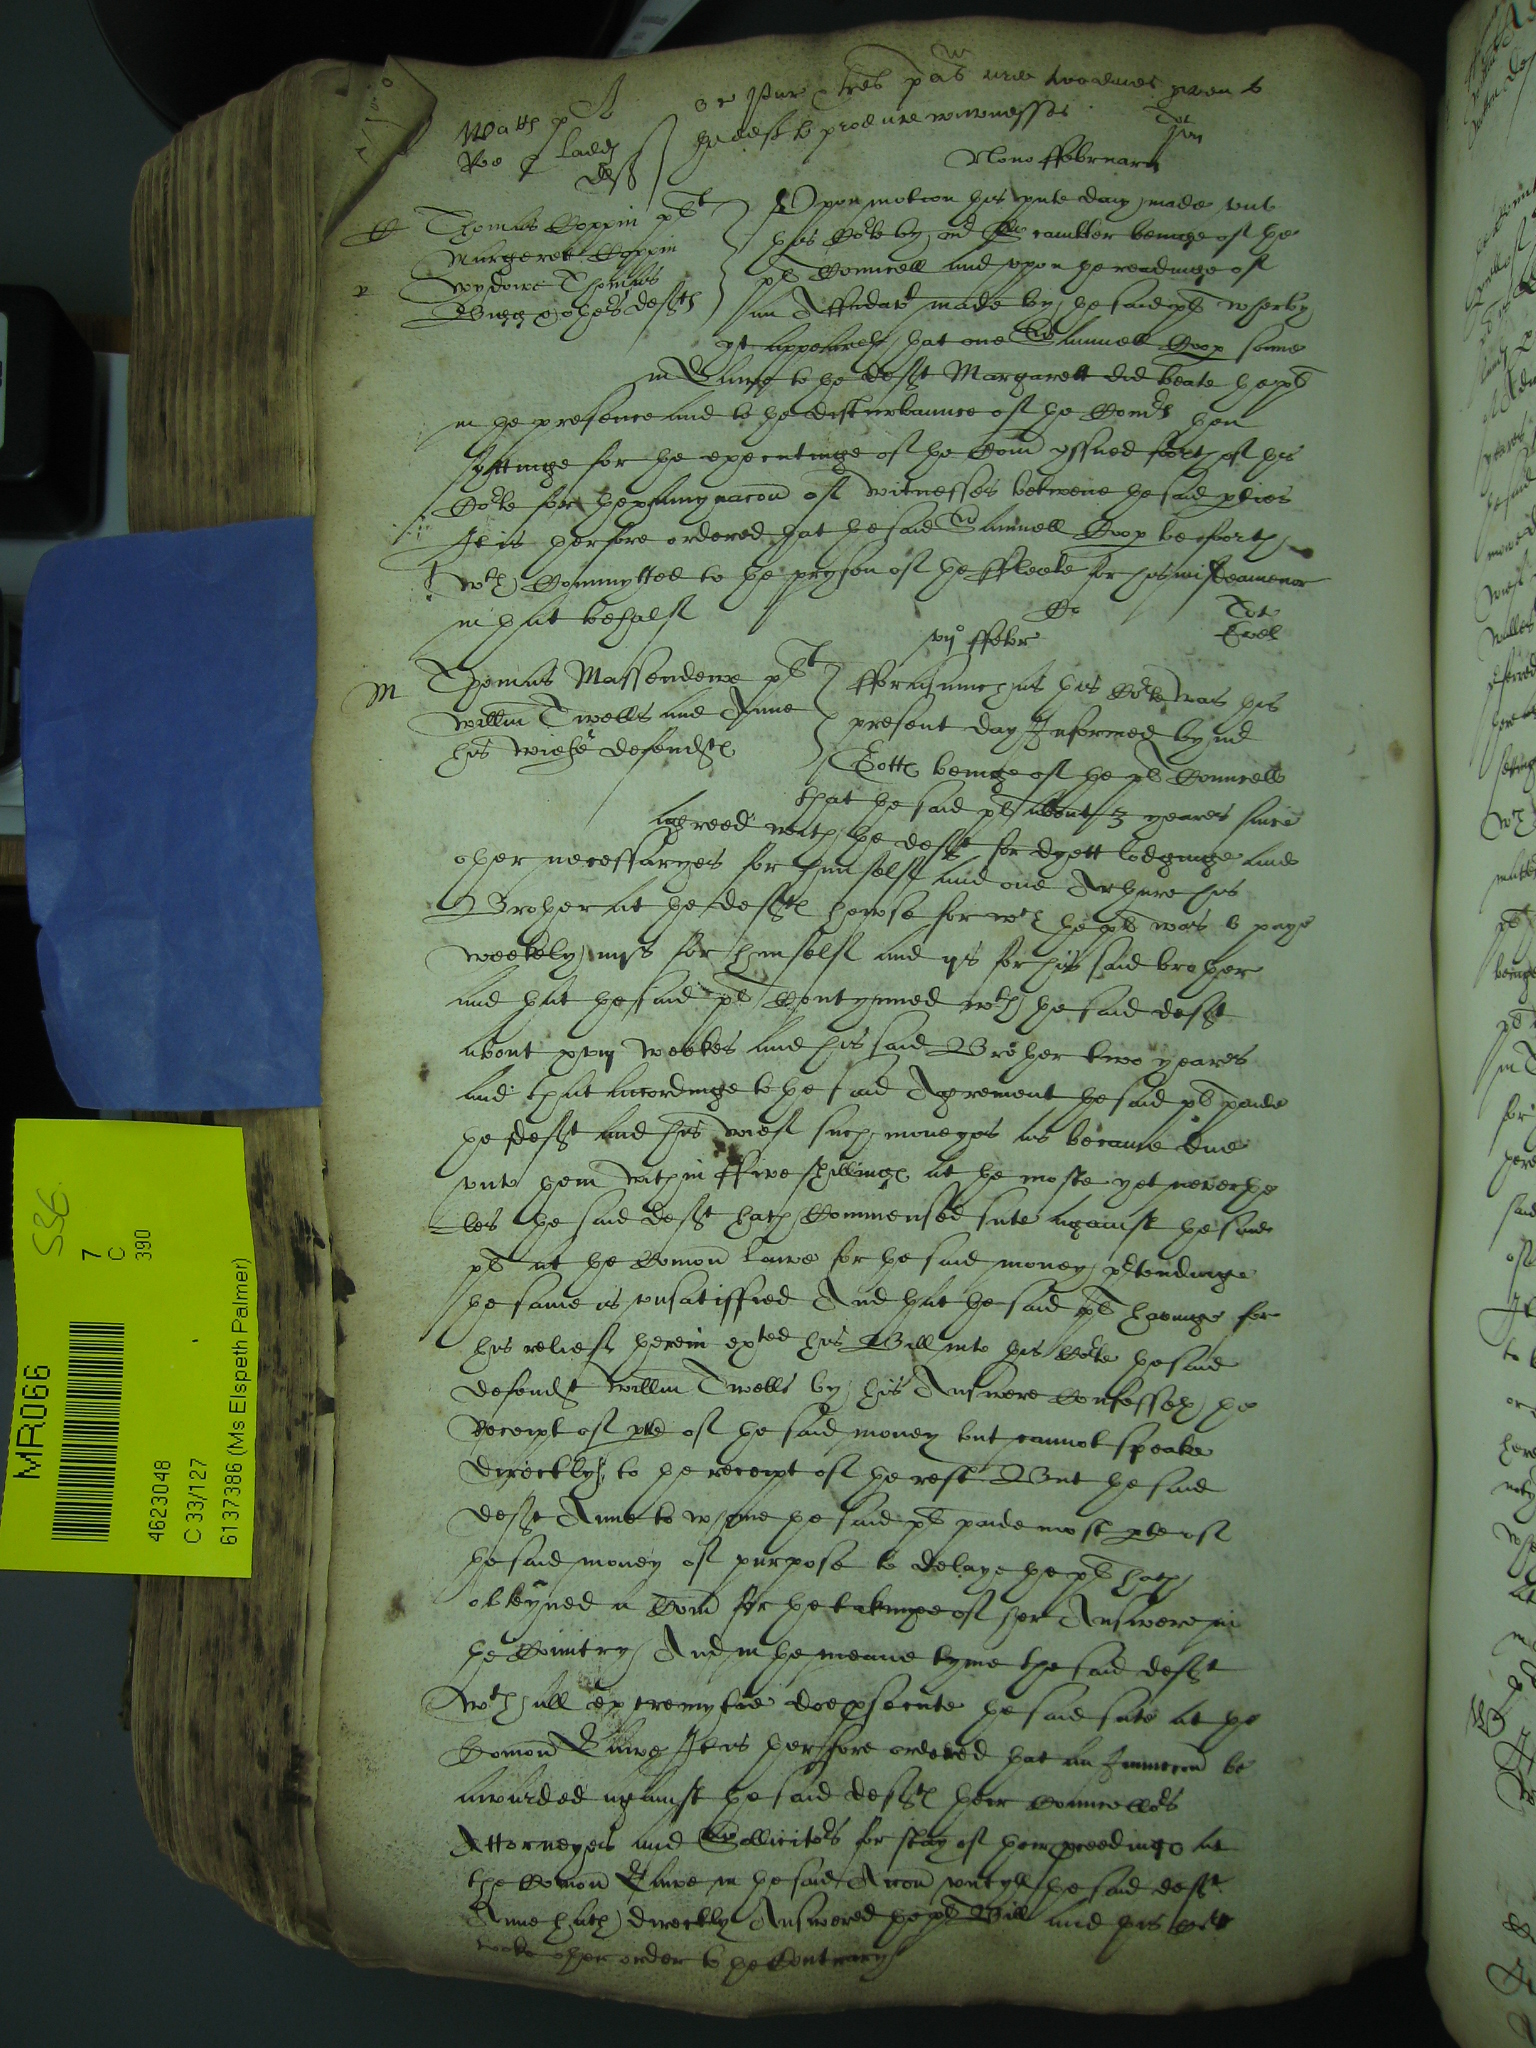 to the deft to produce wittnesses
Nono ffebruarij
Thomas Coppin plt
Margeret Coppin
wydowe Thomas
Bigg & others defts
Upon motion this pnte day made unto
this Corte by mr Cawltler beinge of the
pl Councell and upon the readinge of
an Affidavt made by the said pl wherby
yt appeareth that one Samuell Coop sonne
in Lawe to the deft Margarett did beate the pl
in the presence and to the disturbaunce of the Comrs then
syttinge for the executinge of the Com yssued foorth of this
Corte for thexamynacon of wittnesses betwene the said pties
It is therfore ordered that the said Samuell Coop be foorth
wth Commytted to the pryson of the ffleete for his misdeamenor
in that behalf
vijo ffebr
Thomas Massendene plt
Willm Twells and Anne
his wiefe defendts
fforasmuch as this Corte was this
present day Informed by mr
Tothe beinge of the pl Councells
that the said pl about 3 yeares since
agreed with the deft for dyett lodginge and
other necessaryes for himself and one Arthure his
Brother at the defts howse for wch the pl was to paye
weekely iiijs for himself and ijs for his said brother
and that the said pl Contynued wth the said deft
about xviij weekes and his said Brother two yeares
and that accordinge to the said Agrement the said pl paide
the deft and his wief such moneyes as became due
unto them within ffive shillings at the moste yet neverthe
les the said deft hath Commensed sute against the said
pl at the Comon Lawe for the said money ptendinge
the same is unsatiffied And that the said pl havinge for
his relief therein exhted his Bill into this Corte the said
defendt Willm Twells by his Answere Confesseth the
Receipt of pte of the said money but cannot speake
directlye to the receipt of the rest But the said
deft Anne to whome the said pl paide most pte of
the said money of purpose to delaye the pl hath
obteyned a Com for the takinge of her Answere in
the Country And in the meane tyme the said deft
wth all extremytie doe psecute the said sute at the
Comon Lawe It is therfore ordered that an Iniuncon be
awarded against the said defts their Councellors
Attorneyes and Sollicitors for stay of their pceedings at
the Comon Lawe in the said Accon untyll the said deft
Anne hath directly Answered the pl Bill and this Corte
take other order to the Contrary
536
7
C
390
MR066
4623048
C 33/127
6137386 (Ms Elspeth Palmer)